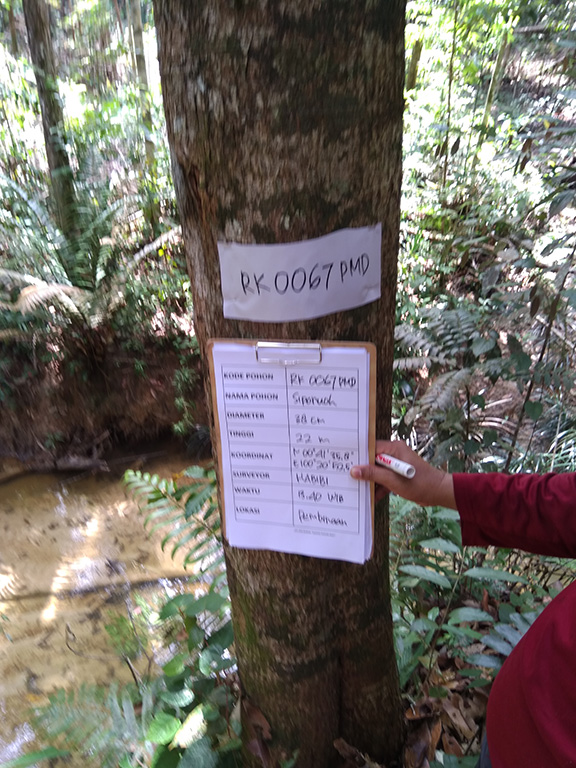 RK 0067 PMD
KODE POHON RK 0067 PMD
NAMA POHON
DIAMETER 38 cm
TINGGI 22 m
KOORDINAT
SURVEYOR HABIBI
WAKTU WIB
LOKASI Pembinaan